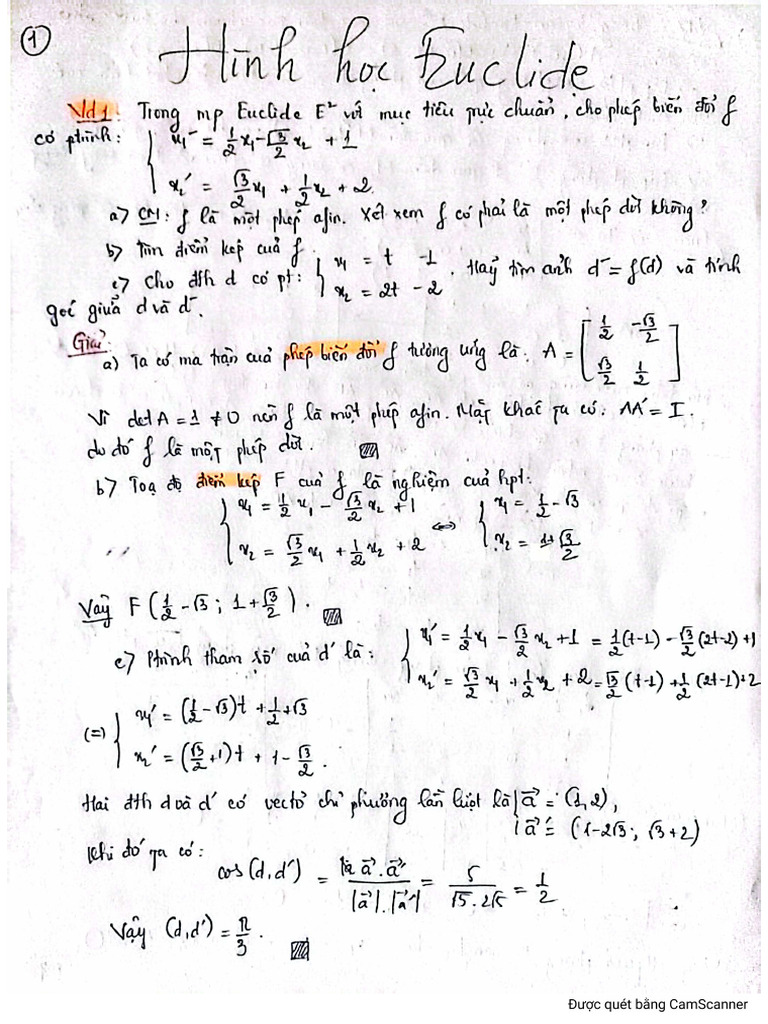 ①
Hình học Euclide
Vd1: Trong mp Euclide E² với mục tiêu trực chuẩn, cho phép biến đổi f
có ptrình: { x₁' = 1/2 x₁ - √3/2 x₂ + 1
x₂' = √3/2 x₁ + 1/2 x₂ + 2.
a) CM: f là một phép afin. Xét xem f có phải là một phép dời không?
b) Tìm điểm kép của f.
c) Cho đth d có pt: { x₁ = t - 1
x₂ = 2t - 2 . Hãy tìm ảnh d' = f(d) và tính
góc giữa d và d'.
Giải:
a) Ta có ma trận của phép biến đổi f tương ứng là: A = [ 1/2 -√3/2
√3/2 1/2 ]
Vì det A = 1 ≠ 0 nên f là một phép afin. Mặt khác ta có: AA' = I.
do đó f là một phép dời.
b) Toạ độ điểm kép F của f là nghiệm của hpt:
{ x₁ = 1/2 x₁ - √3/2 x₂ + 1 ⇔ { x₁ = 1/2 - √3
x₂ = √3/2 x₁ + 1/2 x₂ + 2 x₂ = 1+√3/2
Vậy F(1/2 - √3 ; 1 + √3/2).
c) Ptrình tham số của d' là: { x₁' = 1/2 x₁ - √3/2 x₂ + 1 = 1/2(t-1) - √3/2(2t-2) + 1
x₂' = √3/2 x₁ + 1/2 x₂ + 2 = √3/2(t-1) + 1/2(2t-1)+2
(=) { x₁' = (1/2 - √3)t + 1/2 + √3
x₂' = (√3/2 + 1)t + 1 - √3/2.
Hai đth d và d' có vectơ chỉ phương lần lượt là | a⃗ = (1,2),
| a⃗' = (1-2√3; √3+2)
Khi đó ta có:
cos(d,d') = |a⃗.a⃗'| / |a⃗|.|a⃗'| = 5 / √5.2√5 = 1/2
Vậy (d,d') = π/3.
Được quét bằng CamScanner